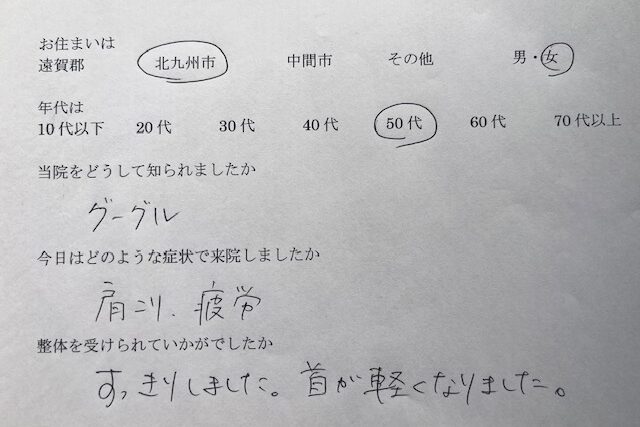 お住まいは
遠賀郡 北九州市 中間市 その他 男・女
年代は
10代以下 20代 30代 40代 50代 60代 70代以上
当院をどうして知られましたか
グーグル
今日はどのような症状で来院しましたか
肩こり、疲労
整体を受けられていかがでしたか
すっきりしました。首が軽くなりました。